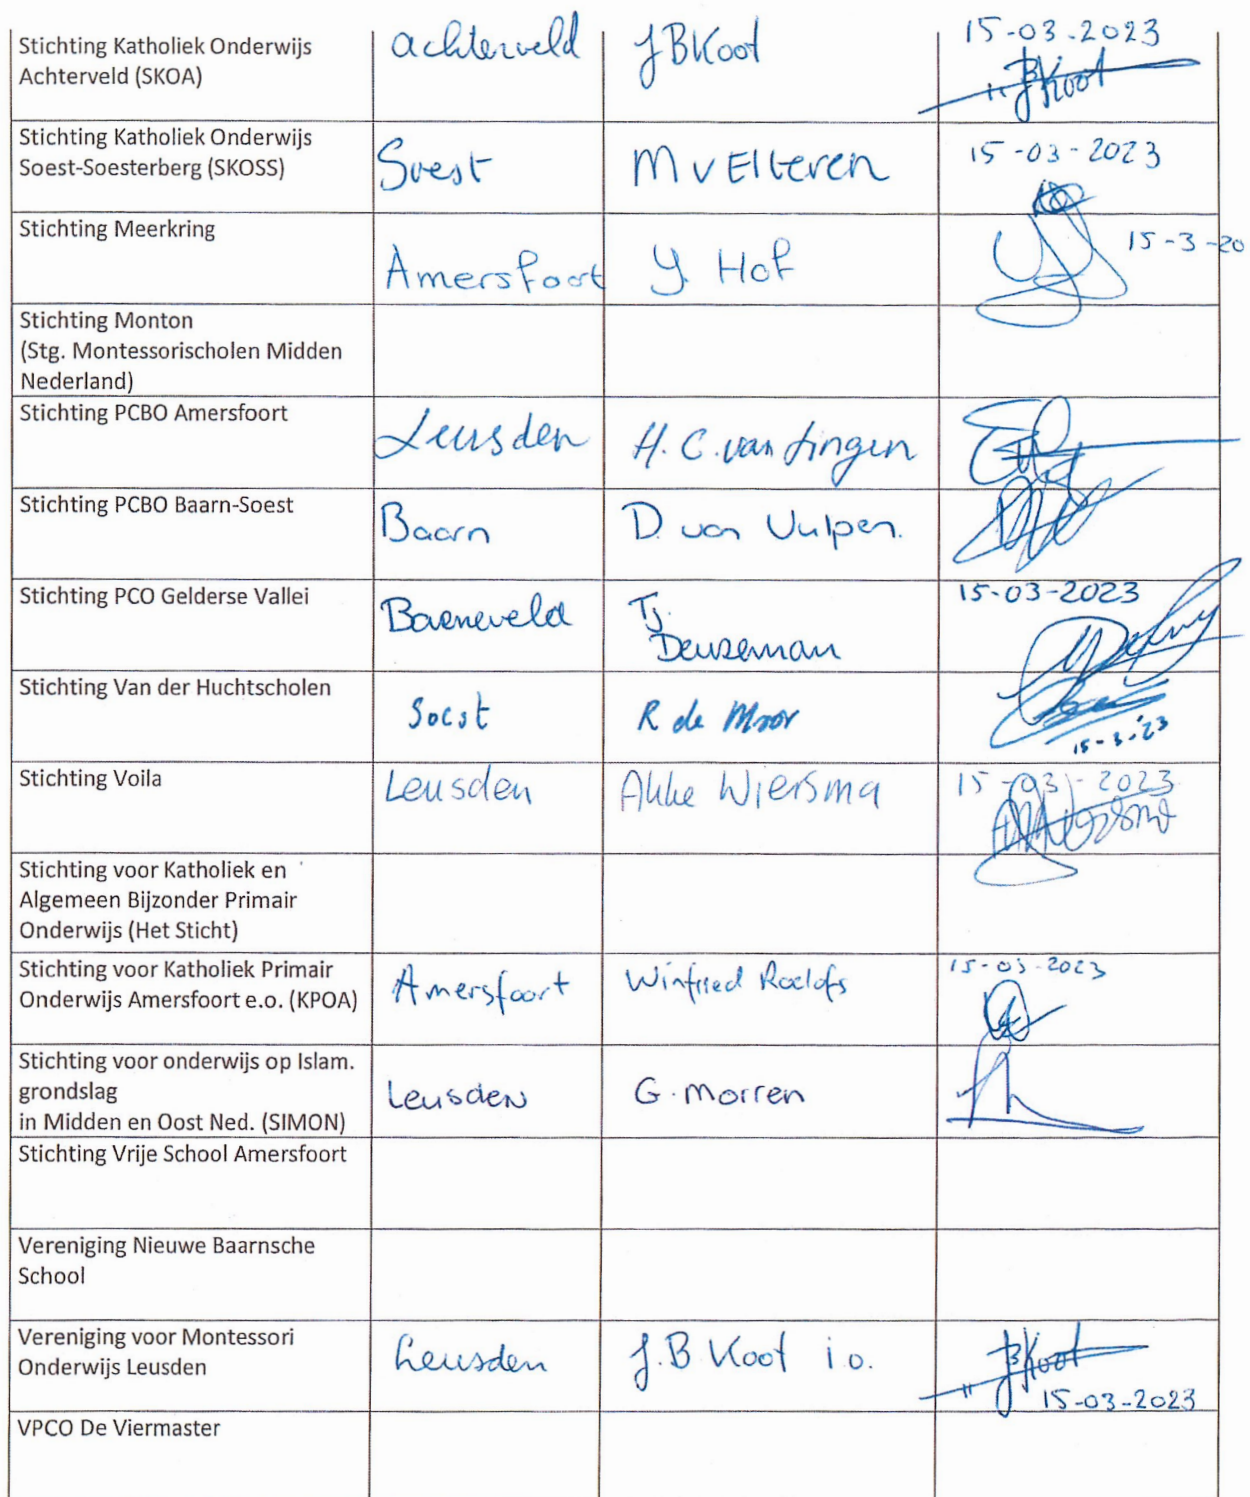 Stichting Katholiek Onderwijs
Achterveld (SKOA)
achterveld
JBKoot
15-03-2023
JBKoot
Stichting Katholiek Onderwijs
Soest-Soesterberg (SKOSS)
Soest
M v Elteren
15-03-2023
Stichting Meerkring
Amersfoort
Y. Hof
15-3-20
Stichting Monton
(Stg. Montessorischolen Midden
Nederland)
Stichting PCBO Amersfoort
Leusden
H. C. van Lingen
Stichting PCBO Baarn-Soest
Baarn
D. van Vulpen.
Stichting PCO Gelderse Vallei
Barneveld
Tj.
Deuzeman
15-03-2023
Stichting Van der Huchtscholen
Soest
R de Moor
15-3-'23
Stichting Voila
Leusden
Akke Wiersma
15-03-2023
Stichting voor Katholiek en
Algemeen Bijzonder Primair
Onderwijs (Het Sticht)
Stichting voor Katholiek Primair
Onderwijs Amersfoort e.o. (KPOA)
Amersfoort
Winfried Roelofs
15-03-2023
Stichting voor onderwijs op Islam.
grondslag
in Midden en Oost Ned. (SIMON)
Leusden
G. Morren
Stichting Vrije School Amersfoort
Vereniging Nieuwe Baarnsche
School
Vereniging voor Montessori
Onderwijs Leusden
Leusden
J.B Koot i.o.
JBKoot
15-03-2023
VPCO De Viermaster